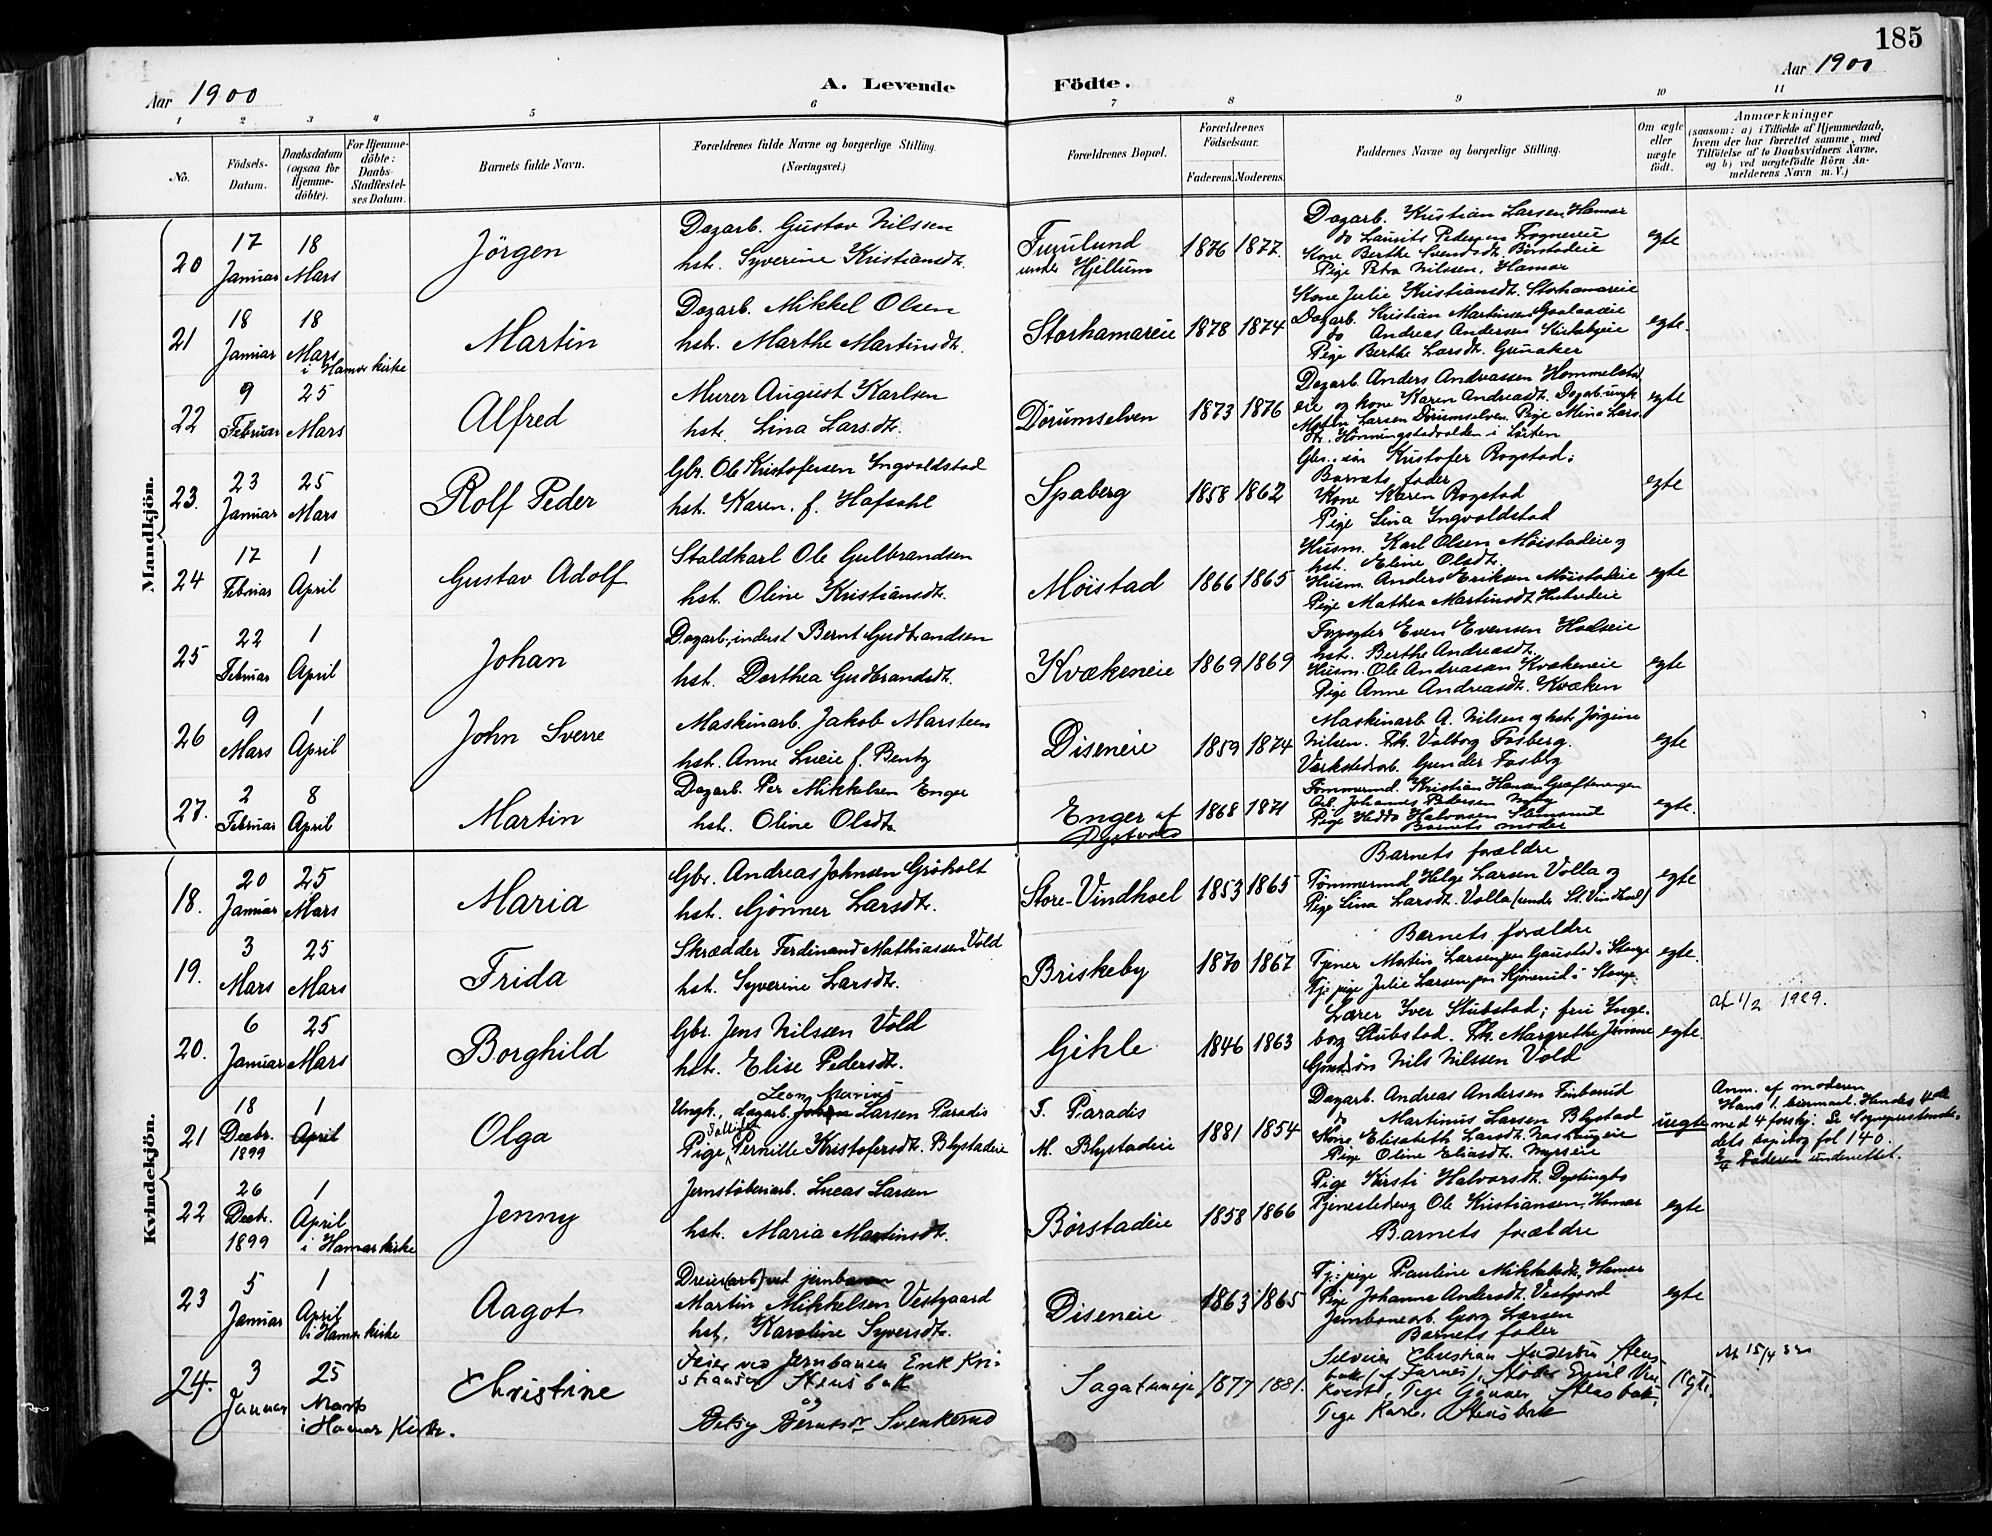 185
Aar 1900
A. Levende
Födte.
Aar 1900
1 2 3 4 5 6 7 8 9 10 11
No.
Födsels-
Datum.
Daabsdatum
(ogsaa for
Hjemme-
döbte).
For Hjemme-
döbte:
Daabs-
Stadfæstel-
ses Datum.
Barnets fulde Navn.
Forældrenes fulde Navne og borgerlige Stilling.
(Næringsvei.)
Forældrenes Bopæl.
Forældrenes
Födselsaar.
Faderens. Moderens.
Faddernes Navne og borgerlige Stilling.
Om ægte
eller
uægte
födt.
Anmærkninger
(saasom: a) i Tilfælde af Hjemmedaab,
hvem der har forrettet samme, med
Tilföielse af to Daabsvidners Navne,
og b) ved uægtefödte Börn An-
melderens Navn m. V.)
Mandkjön.
20
17
Januar
18
Mars
Jörgen
Dagarb. Gustav Nilssen
hst. Syverine Kristiansdt.
Furulund
under Hjellum
1876 1877.
Dagarb. Kristian Larsen, Hamar
do Laurits Pedersen Fogneeie
Kone Berthe Svendsdt. Børstadeie
Pige Petra Nilssen, Hamar
egte
21
18
Januar
18
Mars
i Hamar kirke
Martin
Dagarb. Mikkel Olsen
hst. Marthe Martinsdt.
Storhamareie
1878 1874
Kone Julie Kristiansdt. Storhamareie
Dagarb. Kristian Martinsen Gaalaaeie
do Andreas Andersen Kirkebyeie
Pige Berthe Larsdt. Grinaker
egte.
22
9
Februar
25
Mars
Alfred
Murer August Karlsen
hst. Lina Larsdt.
Dørumselven
1873 1876
Dagarb. Anders Andreassen Hommelstad
eie og kone Karen Andreasdt. Dagarb. ungk.
Martin Larsen Dørumselven. Pige Mina Lars
dt. Hönningstadvolden i Løiten
egte
23.
23
Januar
25
Mars
Rolf Peder
Gbr. Ole Kristofersen Ingvaldstad
hst. Karen. f. Hafsahl
Spaberg
1858 1862
Gbr. søn Kristofer Rogstad;
Barnets fader
Kone Karen Rogstad
Pige Lina Ingvaldstad
egte
24
17
Februar
1
April
Gustav Adolf
Staldkarl Ole Gulbrandsen
hst. Oline Kristiansdt.
Möistad
1866 1865
Husm. Karl Olsen Möistadeie og
hst. Eline Olsdt.
Husm. Anders Eriksen Möistadeie
Pige Mathea Martinsdt.
egte
25
22
Februar
1
April
Johan
Dagarb., inderst Bernt Gudbrandsen
hst. Dorthea Gudbrandsdt.
Kvækeneie
1869 1869
Forpagter Even Evensen Holseie
hst. Berthe Andreasdt.
Husm. Ole Andreassen Kvækeneie
Pige Anne Andreasdt. Kvæken
egte
26
9
Mars
1
April
John Sverre
Maskinarb. Jakob Marsteen
hst. Anne Lucie f. Bentz
Diseneie
1859 1874
Maskinarb. A. Nilsen og hst. Jörgine
Nilsen. Frk. Valborg Fosberg.
Værkstedsarb. Gunder Fosberg
egte
27.
2
Februar
8
April
Martin
Dagarb. Per Mikkelsen Enger
hst. Oline Olsdt.
Enger af
Dystvold
1868 1871
Tömmermd. Kristian Hansen
Arb. Johannes Pedersen
Pige Hedda Halvorsen
Barnets moder
egte.
Kvindekjön.
18.
20
Januar
25
Mars
Maria
Gbr. Andreas Johnsen Gröholt
hst. Gjönner Larsdt.
Store-Vindhoel
1853 1865
Barnets forældre
Tömmermd. Helge Larsen Volla og
Pige Lina Larsdt. Volla (under St. Vindhoel)
egte
19.
3
Mars
25
Mars
Frida
Skrædder Ferdinand Mathiassen Vold
hst. Syverine Larsdt.
Briskeby
1870 1867
Barnets forældre
Tjener Martin Larsen paa Gaustad i Stange
Tj. pige Julie Larsen paa Kjönerud i Stange
egte.
20.
6
Januar
25
Mars
Borghild
Gbr. Jens Nilssen Vold
hst. Elise Pedersdt.
Gihle
1846 1863
Lærer Iver Stubstad; fru Inge-
borg Stubstad. Frk. Margrethe
Gaardsøn Nils Nilssen Vold
egte.
af 1/2 1929.
21
18
Decbr.
1899
1
April
Olga
Leon Marius
Ungk., dagarb. Larsen Paradis
Pige Pernille Kristofersdt. Blystadeie
F. Paradis
M. Blystadeie
1881 1854
Dagarb. Andreas Andersen Finborud
do Martinus Larsen Blystad
Kone Elisabeth Larsdt.
Pige Oline Eliasdt. Myrseie
uegte
Anm. af moderen
Hans 1. leiermaal. Hendes 4de
med 4 forskj. Se Sogneprestembe-
dets kopibog fol 140.
Faderen underrettet.
22
26
Decbr.
1899
1
April
i Hamar kirke
Jenny
Jernstöberiarb. Lucas Larsen
hst. Maria Martinsdt.
Börstadeie
1858 1866
Pige Kirsti Halvorsdt. Dystingbo
Ole Kristiansen, Hamar
Barnets forældre
egte
23
5
Januar
1
April
i Hamar kirke
Aagot
Dreier(arb) ved jernbanen
Martin Mikkelsen Vestgaard
hst. Karoline Syversdt.
Diseneie
1863 1865
Tj. pige Pauline Mikkelsdt., Hamar
Pige Johanne Andersdt. Vestgaard
Jernbanearb. Georg Larsen
Barnets fader
egte
24.
3
Januar
25
Marts
i Hamar Kirke.
Christine
Feier ved Jernbanen Erik Kri-
stiansen Stensbak
og
Betsy Berntsdr Svenkerud
Sagatuneje
1877 1881.
Christian Andersen Stens-
bak (af Furnes), Støber Emil
Pige Gønner Stensbak,
Pige Karo. Stensbak
egte.
At 15/4 32